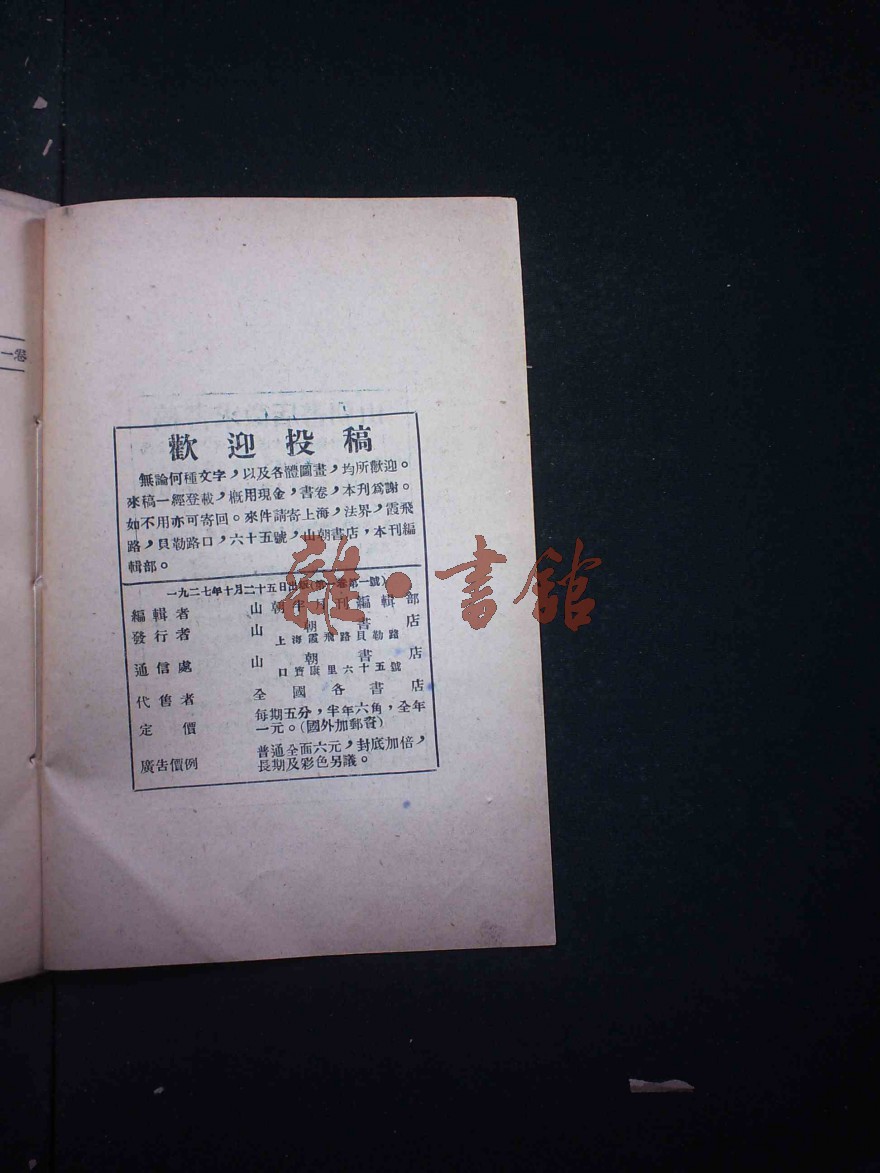 一卷
歡迎投稿
無論何種文字，以及各體圖畫，均所歡迎。
來稿一經登載，概用現金，書卷，本刊爲謝。
如不用亦可寄回。來件請寄上海，法界，霞飛
路，貝勒路口，六十五號，山朝書店，本刊編
輯部。
一九二七年十月二十五日出版(第一卷第一號)
編輯者 山朝半月刊編輯部
發行者 山朝書店
上海霞飛路貝勒路
通信處 山朝書店
口寶康里六十五號
代售者 全國各書店
定價 每期五分，半年六角，全年
一元。(國外加郵費)
廣告價例 普通全面六元，封底加倍，
長期及彩色另議。
雜·書館